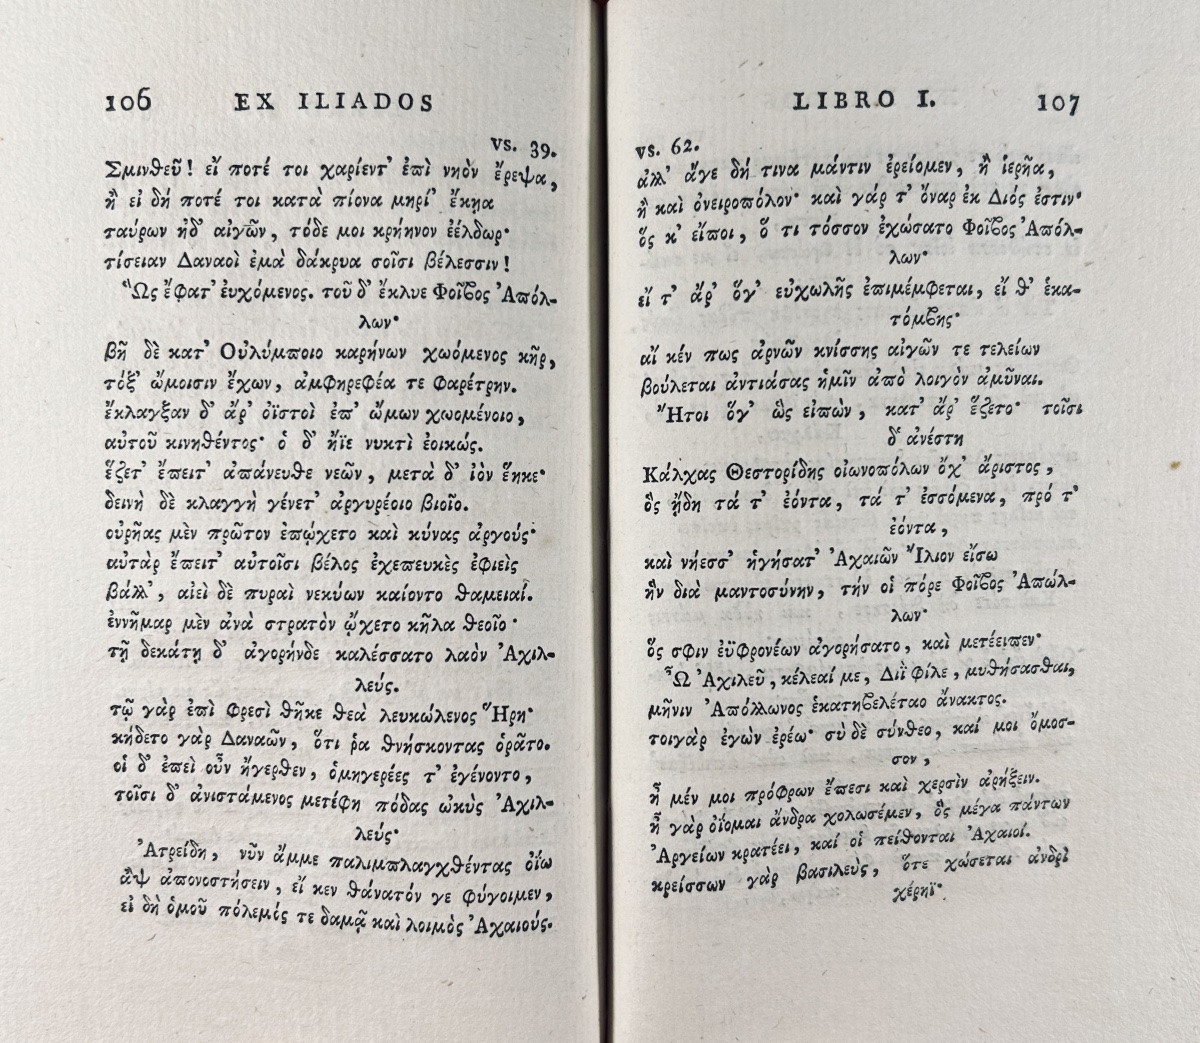 106 EX ILIADOS
vs. 39.
Σμινθεῦ! εἴ ποτέ τοι χαρίεντ' ἐπὶ νηὸν ἔρεψα,
ἢ εἰ δή ποτέ τοι κατὰ πίονα μηρί' ἔκηα
ταύρων ἠδ' αἰγῶν, τόδε μοι κρήηνον ἐέλδωρ·
τίσειαν Δαναοὶ ἐμὰ δάκρυα σοῖσι βέλεσσιν!
Ὣς ἔφατ' εὐχόμενος. τοῦ δ' ἔκλυε Φοῖβος Ἀπόλ-
λων·
βῆ δὲ κατ' Οὐλύμποιο καρήνων χωόμενος κῆρ,
τόξ' ὤμοισιν ἔχων, ἀμφηρεφέα τε φαρέτρην.
ἔκλαγξαν δ' ἄρ' ὀϊστοὶ ἐπ' ὤμων χωομένοιο,
αὐτοῦ κινηθέντος· ὁ δ' ἤϊε νυκτὶ ἐοικώς.
ἕζετ' ἔπειτ' ἀπάνευθε νεῶν, μετὰ δ' ἰὸν ἕηκε·
δεινὴ δὲ κλαγγὴ γένετ' ἀργυρέοιο βιοῖο.
οὐρῆας μὲν πρῶτον ἐπῴχετο καὶ κύνας ἀργούς·
αὐτὰρ ἔπειτ' αὐτοῖσι βέλος ἐχεπευκὲς ἐφιεὶς
βάλλ', αἰεὶ δὲ πυραὶ νεκύων καίοντο θαμειαί.
ἐννῆμαρ μὲν ἀνὰ στρατὸν ᾤχετο κῆλα θεοῖο·
τῇ δεκάτῃ δ' ἀγορήνδε καλέσσατο λαὸν Ἀχιλ-
λεύς.
τῷ γὰρ ἐπὶ φρεσὶ θῆκε θεὰ λευκώλενος Ἥρη·
κήδετο γὰρ Δαναῶν, ὅτι ῥα θνήσκοντας ὁρᾶτο.
οἱ δ' ἐπεὶ οὖν ἤγερθεν, ὁμηγερέες τ' ἐγένοντο,
τοῖσι δ' ἀνιστάμενος μετέφη πόδας ὠκὺς Ἀχιλ-
λεύς·
Ἀτρείδη, νῦν ἄμμε παλιμπλαγχθέντας ὀΐω
ἂψ ἀπονοστήσειν, εἴ κεν θάνατόν γε φύγοιμεν,
εἰ δὴ ὁμοῦ πόλεμός τε δαμᾷ καὶ λοιμὸς Ἀχαιούς.
LIBRO I. 107
vs. 62.
ἀλλ' ἄγε δή τινα μάντιν ἐρείομεν, ἢ ἱερῆα,
ἢ καὶ ὀνειροπόλον· καὶ γάρ τ' ὄναρ ἐκ Διός ἐστιν·
ὅς κ' εἴποι, ὅ τι τόσσον ἐχώσατο Φοῖβος Ἀπόλ-
λων·
εἴ τ' ἄρ' ὅγ' εὐχωλῆς ἐπιμέμφεται, εἴ θ' ἑκα-
τόμβης·
αἴ κέν πως ἀρνῶν κνίσσης αἰγῶν τε τελείων
βούλεται ἀντιάσας ἡμῖν ἀπὸ λοιγὸν ἀμῦναι.
Ἤτοι ὅγ' ὣς εἰπὼν, κατ' ἄρ' ἕζετο· τοῖσι
δ' ἀνέστη
Κάλχας Θεστορίδης οἰωνοπόλων ὄχ' ἄριστος,
ὃς ᾔδη τά τ' ἐόντα, τά τ' ἐσσόμενα, πρό τ'
ἐόντα,
καὶ νήεσσ' ἡγήσατ' Ἀχαιῶν Ἴλιον εἴσω
ἣν διὰ μαντοσύνην, τήν οἱ πόρε Φοῖβος Ἀπώλ-
λων·
ὅς σφιν ἐϋφρονέων ἀγορήσατο, καὶ μετέειπεν·
Ὦ Ἀχιλεῦ, κέλεαί με, Διῒ φίλε, μυθήσασθαι,
μῆνιν Ἀπόλλωνος ἑκατηβελέταο ἄνακτος.
τοιγὰρ ἐγὼν ἐρέω· σὺ δὲ σύνθεο, καί μοι ὄμοσ-
σον,
ἦ μέν μοι πρόφρων ἔπεσι καὶ χερσὶν ἀρήξειν.
ἦ γὰρ ὀΐομαι ἄνδρα χολωσέμεν, ὃς μέγα πάντων
Ἀργείων κρατέει, καί οἱ πείθονται Ἀχαιοί.
κρείσσων γὰρ βασιλεὺς, ὅτε χώσεται ἀνδρὶ
χέρηϊ·